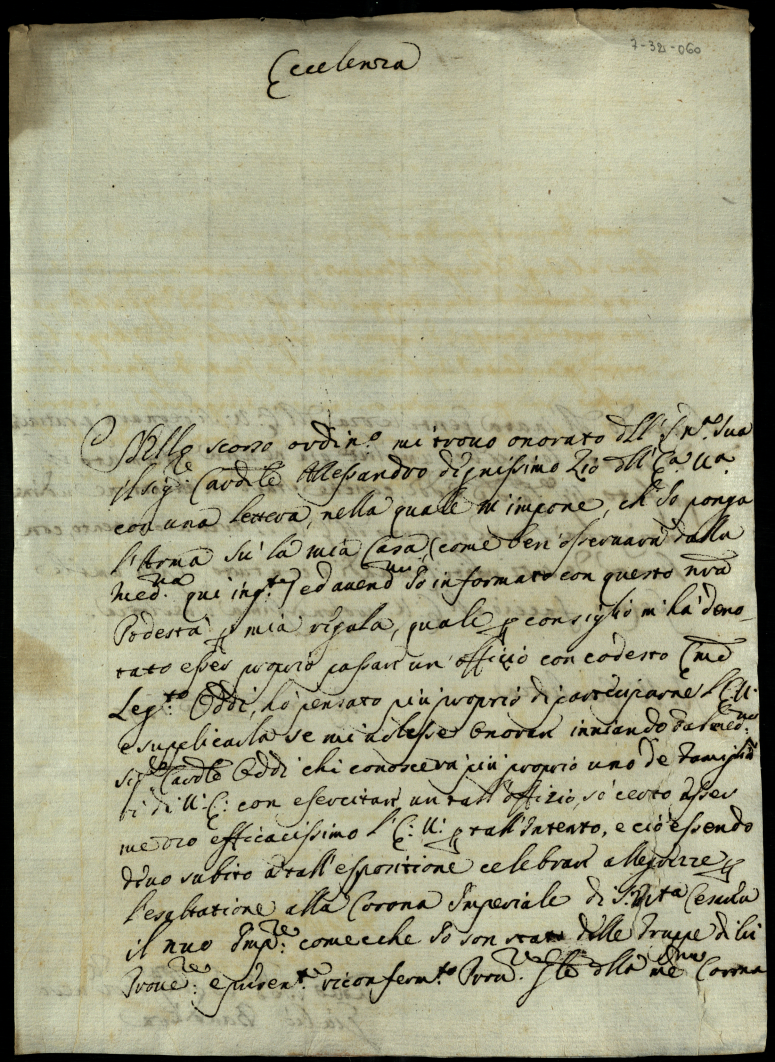 7-32-060
Eccelenza
Nello scorso ordin.o mi trovo onorato dall'
il Sig.re Cardle Alessandro dignissimo Zio dell' Ec.a V.a
con una lettera, nella quale m'impone, ch'Io ponga
l'Arma sù la mia Casa, (come ben osservarà dalla
med.ma qui ing.ta) ed avend Io informato con questo nrõ
Podestà p mia regala, quale p consiglio m'ha deno-
tato esser proprio passar un' offizio con codesto Emõ
Leg.to Oddi, hò pensato più proprio di participarne l'E: V:
e supplicarla se mi volesse onorar inviando dal med:mo
Sig.re Cardle Oddi chi conoscerà più proprio uno de famiglia
ri di V: E: con esercitar un tall' offizio, sò certo esser
mezzo efficacissimo l'E: V: p tall' Intento, e ciò essendo
devo subito à tall' espositione celebrar allegrezze p
l'esaltatione alla Corona Imperiale di S: Mtà Cesarea
il nuo Imp.re come che Io son stato delle Truppe di lui
Prove.re riconferm.to Prov.re dalla med.ma Corona